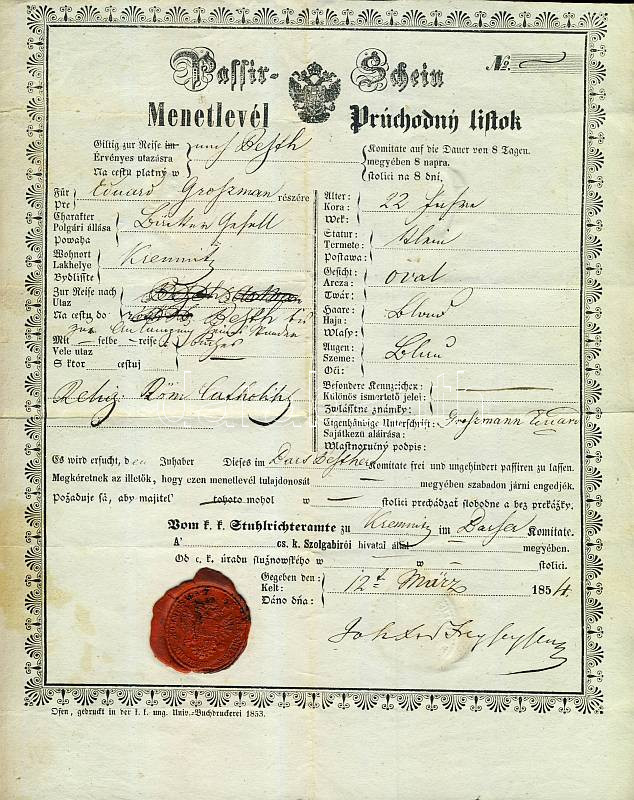 Passir- Schein
Nº.
Menetlevél Průchodný listok
Giltig zur Reise im
Érvényes utazásra
Na cestu platný w
nach Pesth
Komitate auf die Dauer von 8 Tagen.
megyében 8 napra.
stolici na 8 dní.
Für
Pre
Eduard Groszman
részére
Charakter
Polgári állása
Powaha
Gesell
Wohnort
Lakhelye
Bydliště
Kremnitz
Zur Reise nach
Utaz
Na cestu do
Pesth bis
zur
Mit — selbe — reise
Vele utaz
S ktor cestuj
Relig: Röm Catholik
Alter:
Kora:
Wek:
22 Jahre
Statur:
Termete:
Postawa:
klein
Gesicht:
Arcza:
Twár:
oval
Haare:
Haja:
Wlasy:
blond
Augen:
Szeme:
Oči:
blau
Besondere Kennzeichen:
Különös ismertető jelei:
Zvláštne známky:
Eigenhändige Unterschrift:
Sajátkezü aláirása:
Wlastnoručný podpis:
Groszmann Eduard
Es wird ersucht, den Inhaber Dieses im Komitate frei und ungehindert passiren zu lassen.
Megkéretnek az illetők, hogy ezen menetlevél tulajdonosát — megyében szabadon járni engedjék.
Požaduje sá, aby majitel' tohoto mohol w — stolici prechádzat slobodne a bez prekážky.
Vom k. k. Stuhlrichteramte zu Kremnitz im Barser Komitate.
A' cs. k. Szolgabirói hivatal által megyében.
Od c. k. úradu služnowského w stolici.
Gegeben den:
Kelt:
Dáno dňa:
12t März 1854
Ofen, gedruckt in der k. k. ung. Univ.-Buchdruckerei 1853.